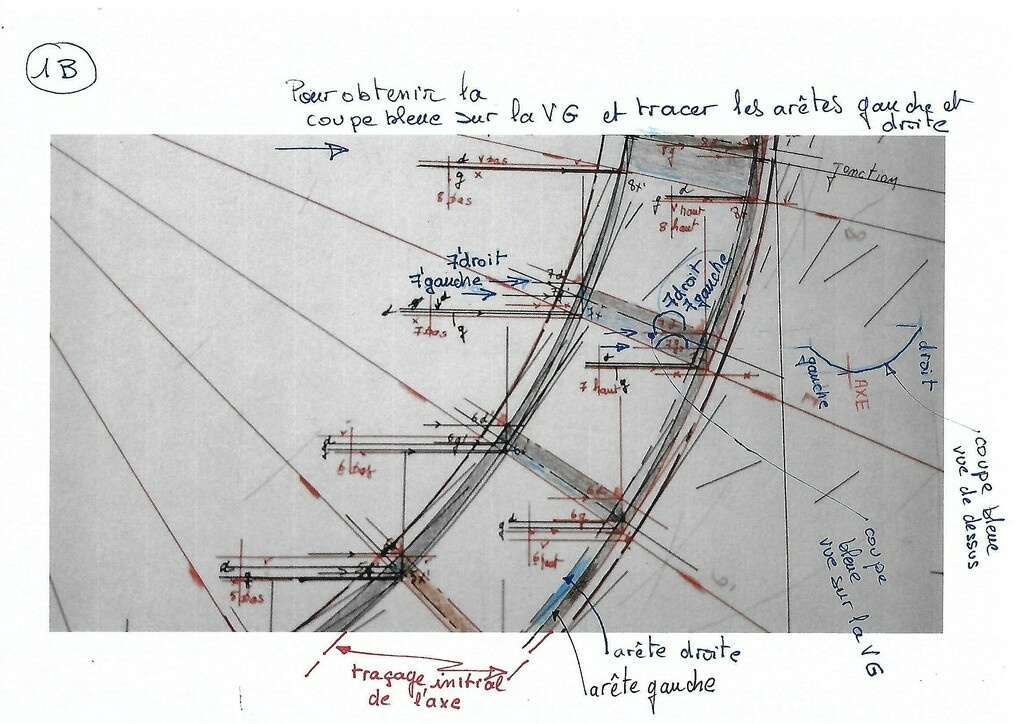 1B
Pour obtenir la
coupe bleue sur la VG et tracer les arêtes gauche et
droite
d
g
8 bas
8x'
d
g
haut
8 haut
8
Jonction
7'droit
7'gauche
7d
7x
d
d
7 bas
g
7droit
7gauche
d
7 haut
g
gauche
AXE
droit
coupe bleue
vue de dessus
6d'
6g'
d
g
6 bas
6d
6g
d
g
6 haut
d
g
5 bas
coupe
bleue
vue sur la VG
arête droite
arête gauche
traçage initial
de l'axe